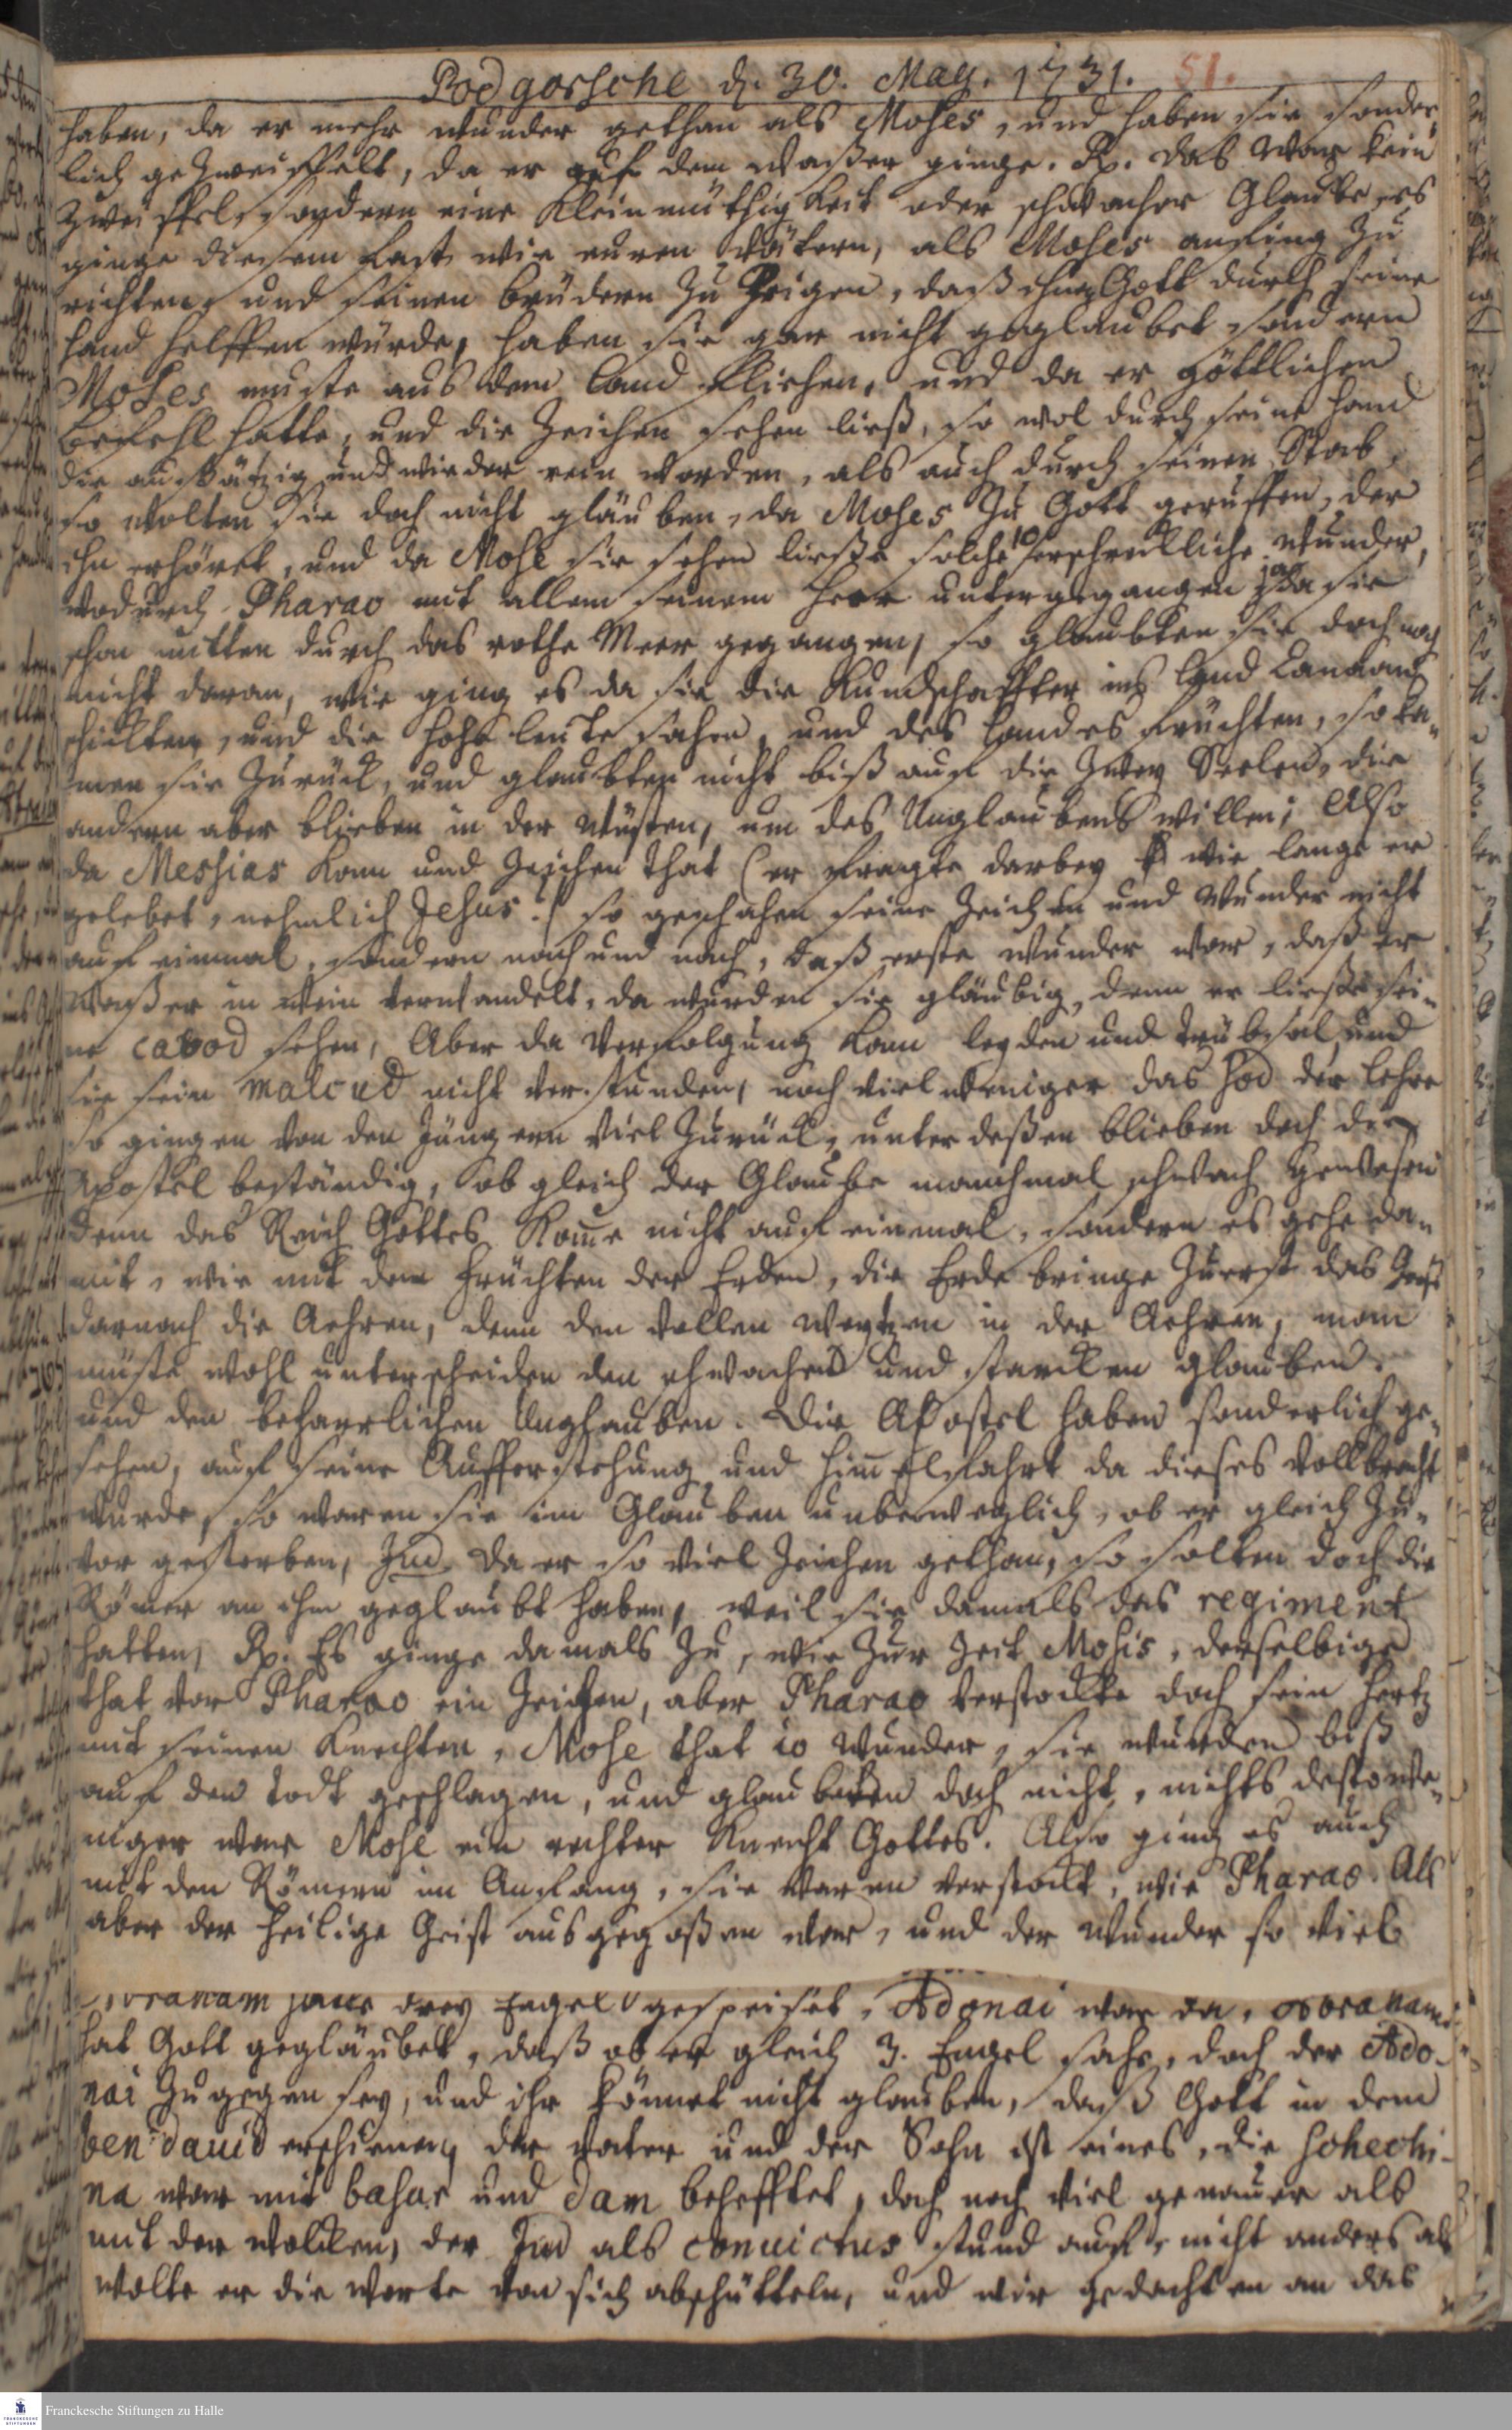 Podgorsche d. 30. May. 1731. 51.
haben, da er mehr wunder gethan als Moses, und haben sie sonder
lich gezweiffelt, da er auf dem Waßer ginge. Rp. das war kein
Zweiffel, sondern eine Kleinmüthigkeit oder schwacher Glaube, es
ginge diesem fast wie euren Vätern, als Moses anfing zu
richten, und seinen brüdern zu zeigen, daß ihnen Gott durch seine
hand helffen würde, haben sie gar nicht geglaubet sondern
Moses muste aus dem land fliehen, und da er göttlichen
befehl hatte, und die Zeichen sehen ließ, so wol durch seine hand
die außätzig und wieder rein worden, als auch durch seinen Stab,
so wolten sie doch nicht gläuben, da Moses zu Gott geruffen, der
ihn erhöret, und da Mose sie sehen ließe solche 10 erschreckliche wunder,
wodurch Pharao mit allem seinem Heer untergegangen ja da sie
schon mitten durch das rothe Meer gegangen, so glaubten sie doch noch
nicht daran, wie ging es da sie die Kundschaffter ins land Canaan
schickten, und die hohe leute sahen, und des landes früchten, so ka-
men sie zurück, und glaubten nicht biß auf die zwey Seelen, die
andern aber blieben in der wüsten, um des Unglaubens willen; Also
da Messias kam und Zeichen that (er fragte darbey wie lange er
gelebet, nehmlich Jesus?) so geschahen seine Zeichen und Wunder nicht
auf einmal, sondern nach und nach, daß erste wunder war, daß er
Waßer in wein verwandelt, da wurden sie gläubig, denn er ließe sei-
ne cavod sehen, Aber da Verfolgung kam leyden und trübsal und
sie sein malcud nicht verstunden, noch viel weniger das Hod der lehre
so gingen von den jüngern viel zurück, unter deßen blieben doch die
Apostel beständig, ob gleich der Glaube manchmal schwach gewesen
denn das Reich Gottes kome nicht auf einmal, sondern es gehe da-
mit, wie mit den früchten der Erden, die Erde bringe zuerst das Graß
darnach die Aehren, denn den vollen Weytzen in der Aehren, man
müste wohl unterscheiden den schwachen und starcken glauben.
und den beharrlichen Unglauben. Die Apostel haben sonderlich ge-
sehen, auf seine Aufferstehung und himelfahrt da dieses vollbracht
wurde, so waren sie im Glauben unbeweglich, ob er gleich zu-
vor gestorben, Jud. da er so viel Zeichen gethan, so solten doch die
Römer an ihn geglaubt haben, weil sie damals das regiment
hatten, Rp. Es ginge damals zu, wie zur Zeit Mosis, derselbige
that vor Pharao ein Zeichen, aber Pharao verstockte doch sein hertz
mit seinen Knechten, Mose that 10 Wunder, sie wurden biß
auf den todt geschlagen, und glaubeten doch nicht, nichts destowe-
niger war Mose ein rechter Knecht Gottes. Also ging es auch
mit den Römern im Anfang, sie waren verstockt, wie Pharao. Als
aber der heilige Geist ausgegoßen war, und der Wunder so viel
Abraham hatte drey Engel gespeiset, Adonai war da, Abraham
hat Gott gegläubet, daß ob er gleich 3. Engel sahe, doch der Ado-
nai zugegen sey, und ihr könnet nicht glauben, daß Gott in dem
ben david erschienen, der vater und der Sohn ist eines, die Schechi-
na war mit basar und dam behefftet, doch noch viel genauer als
mit der wolcken, der Jud als convictus stund auf, nicht anders als
wolte er die worte von sich abschütteln, und wir gedachten an das
Franckesche Stiftungen zu Halle